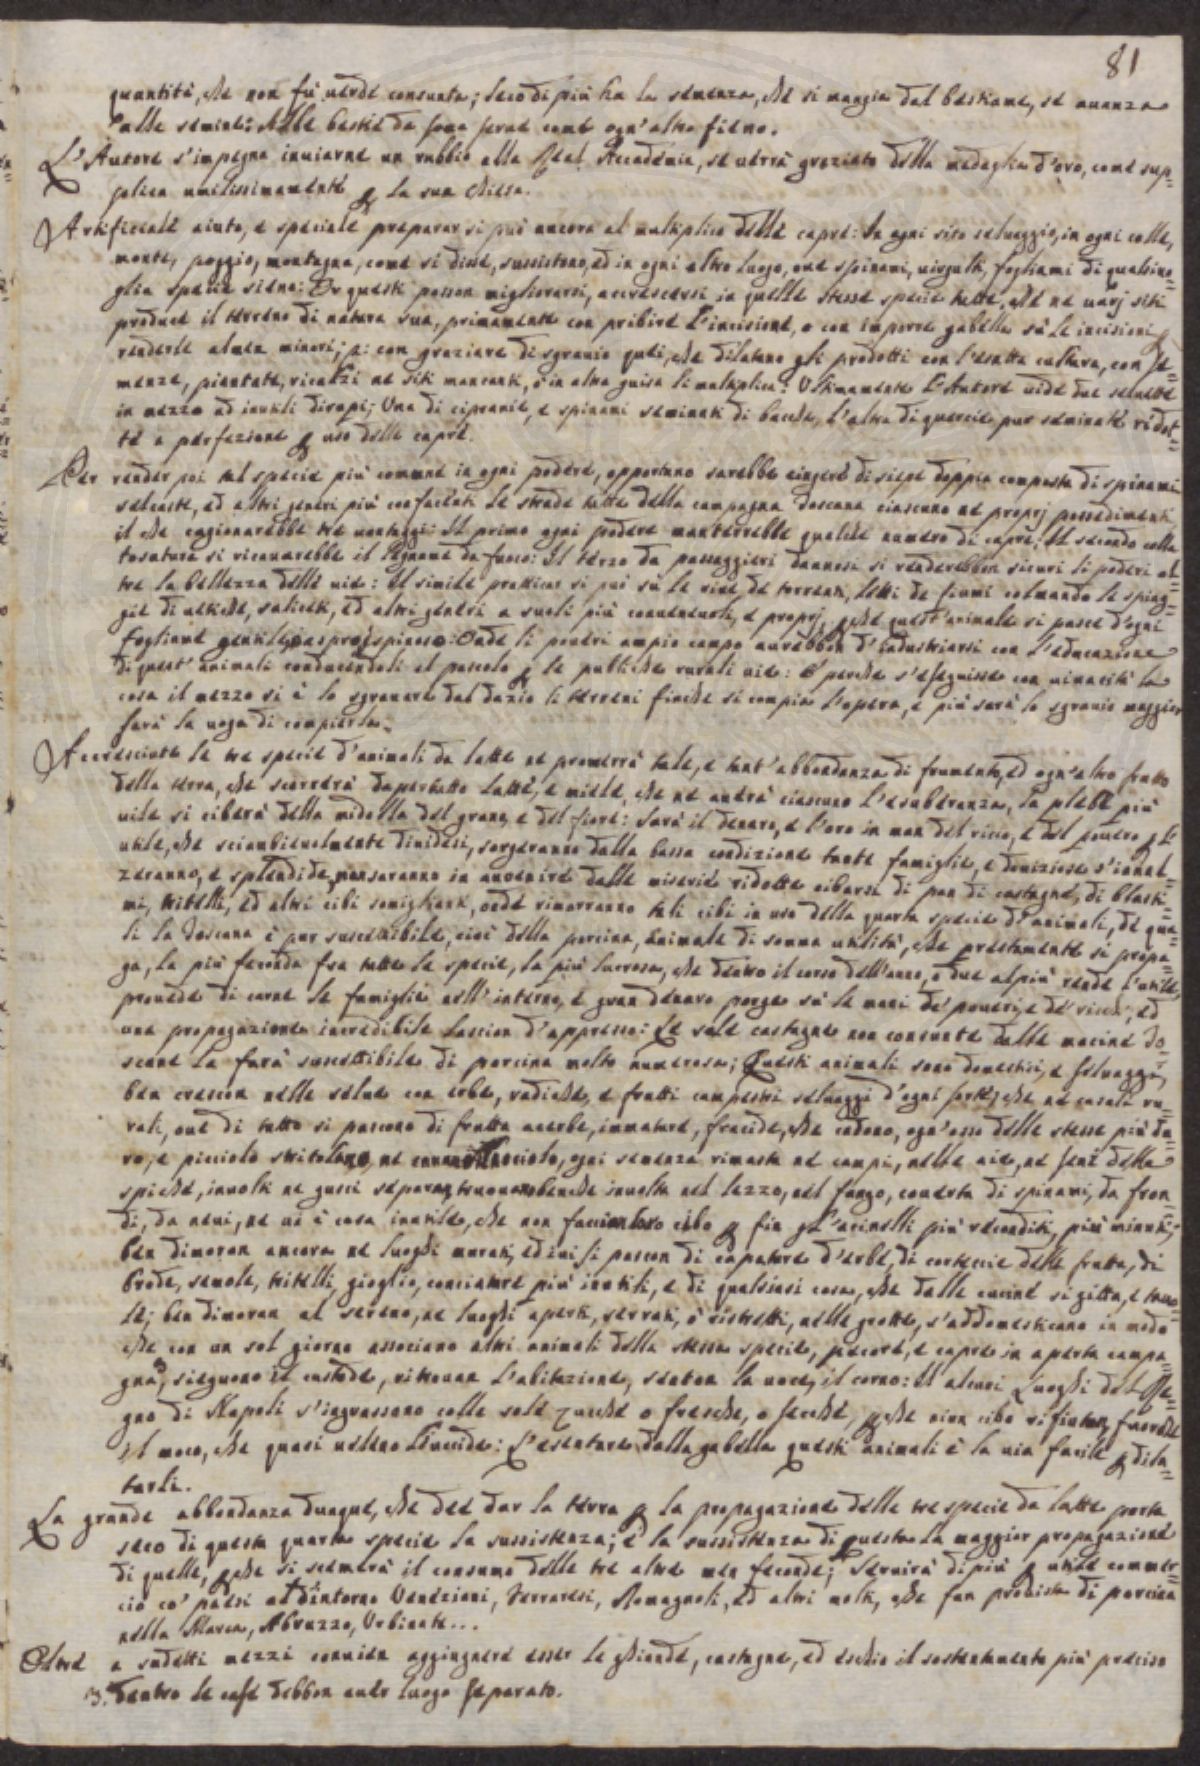 81
quantità, che non fù verde consunta; seco di più ha la semenza, che si mangia dal bestiame, se avanza
alle semine: Alle bestie da soma serve come ogn'altro fieno.
L'Autore s'impegna inviarne un rubbio alla Real Accademia, se verrà graziato della medaglia d'oro, come sup=
plica umilissimamente p la sua Chiesa.
Artificiale aiuto, e speciale preparar si può ancora al multiplico delle capre: In ogni sito selvaggio, in ogni colle,
monte, poggio, montagna, come si disse, sussistono, ed in ogni altro luogo, ove spinami, virgulti, fogliami di qualsivo=
glia specie sieno: Or questi posson migliorarsi, accrescersi in quelle stesse specie tutte, che ne varj siti
produce il terreno di natura sua, primamente con pribire l'incisione, o con imporre gabella sù le incisioni p
renderle almen minori; 2: con graziare di sgravio quei, che dilatano gli prodotti con l'esatta cultura, con se=
menze, piantate, ricalzi ne siti mancanti, o in altra guisa li multiplica: Ultimamente l'Autore vide due selvette
in mezzo ad inutili dirupi; Una di cipranie, e spinami seminati di bacche, l'altra di quercie pur seminate ridot=
te a perfezione p uso delle capre.
Per render poi tal specie più comune in ogni podere, opportuno sarebbe cingere di siepe doppia composta di spinami
selvaste, ed altri generi più confacenti le strade tutte della campagna Toscana ciascuno ne proprj possedimenti
il che cagionarebbe tre vantaggi: Il primo ogni podere manterrebbe qualche numero di capre; Il secondo colla
tosatura si ricavarebbe il legname da fuoco: Il terzo da passaggieri dannosi si renderebbon sicuri li poderi ol=
tre la bellezza delle vie: Il simile praticar si può sù le rive de torrenti, letti de fiumi colmando le spiag=
gie di vetiche, saliceti, ed altri generi a suoli più convenevoli, e proprj, pche quest'animale si pasce d'ogni
fogliame gentile, aspro, spinoso: Onde li poveri ampio campo avrebbon d'industriarsi con l'educazione
di quest'animali conducendoli al pascolo p le publiche rurali vie: E perche s'eseguisse con vivacità la
cosa il mezzo si è lo sgravare dal dazio li terreni finche si compia l'opera, e più sarà lo sgravio maggior
sarà la voga di compierla.
Accresciute le tre specie d'animali da latte ne proverrà tale, e tant'abbondanza di frumento, ed ogn'altro frutto
della terra, che scorrerà dapertutto latte, e miele, che ne avrà ciascuno l'esuberanza, la plebe più
vile si ciberà della midolla del grano, e del fiore: sarà il denaro, e l'oro in man del ricco, e del povero p l'
utile, che scianbievolmente dividesi, sorgeranno dalla bassa condizione tante famiglie, e doviziose s'innal=
zeranno, e splendide, nonsaranno in avvenire dalle miserie ridotte cibarsi di pan di castagne, di blasti=
mi, tritelli, ed altri cibi somiglianti, onde rimarranno tali cibi in uso della quarta specie d'animali, de qua=
li la Toscana è pur suscettibile, cioè della porcina, animale di somma utilità, che prestamente si propa=
ga, la più feconda fra tutte le specie, la più lucrosa, che dentro il corso dell'anno, o due alpiù rende l'utile,
provede di carne le famiglie nell'interno, e gran denaro porge sù le mani de' poveri, e de' ricchi, ed
una propagazione incredibile lascia d'appresso: Le sole castagne non consunte dalle macine To=
scane la farà suscettibile di porcina molto numerosa; Questi animali sono domestici, e selvaggi,
ben crescon nelle selve con erbe, radiche, e frutti campestri selvaggi d'ogni sorte, che ne casali ru=
rali, ove di tutto si pascono di frutta acerbe, immature, fracide, che cadono, ogn'osso delle stesse più du=
ro, e picciolo stritolano, ogni semenza rimasta ne campi, nelle aie, ne seni delle
spiche, involti ne gusci separan, trovano benche involta nel lezzo, nel fango, coverta di spinami, da fron
di, da nevi, ne vi è cosa inutile, che non faccian loro cibo p fin gl'acinelli più reconditi, più minuti;
ben dimoran ancora ne luoghi murati, ed ivi si pascon di capature d'erbe, di cortecie delle frutta, di
brode, semole, tritelli, gioglio, conciature più inutili, e di qualsiasi cosa, che dalle cucine si gitta, e
le; ben dimoran al sereno, ne luoghi aperti, serrati, o ristretti, nelle grotte, s'addomesticano in modo
che con un sol giorno associano altri animali della stessa specie, pecore, e capre in aperta campa=
gna, sieguono il custode, ritrovan l'abitazione, senton la voce, il corno: Il alcuni Luoghi del Re=
gno di Napoli s'ingrassano colle sole zucche o fresche, o secche, pche niun cibo rifiutan, fuorche
il moco, che quasi veleno l'uccide: L'esentare dalla gabella questi animali è la via facile p dila=
tarli.
La grande abbondanza dunque, che dee dar la terra p la propagazione delle tre specie da latte porta
seco di questa quarta specie la sussistenza; e la sussistenza di questa la maggior propagazione
di quelle, pche si scemerà il consumo delle tre altre men feconde; servirà di più p utile commer=
cio co' paesi al dintorno Veneziani, Ferraresi, Romagnoli, ed altri molti, che fan provista di porcina
nella Marca, Abruzzo, Urbinate...
Oltre a sudetti mezzi convien aggiugnere esser le ghiande, castagne, ed eschio il sostentamento più preciso
3. dentro le case debbon aver luogo separato.